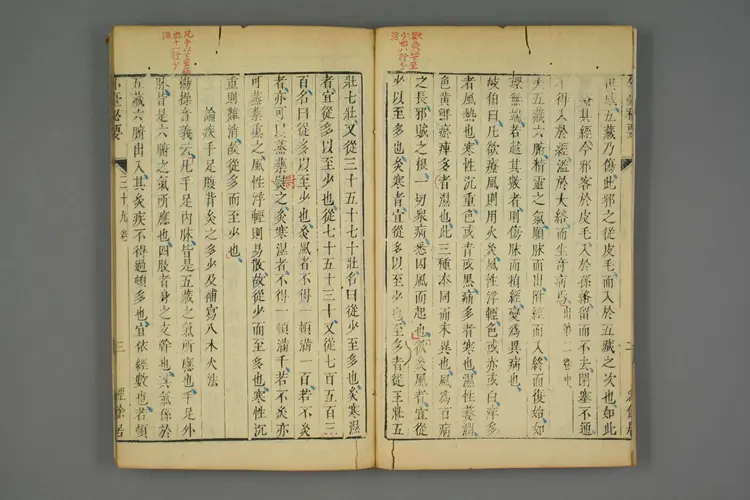 內藏五藏乃傷此邪之從皮毛而入於五藏之次也如此
其經今邪客於皮毛入於孫絡留而不去閉塞不通
不得入於經溢於大絡而生奇病焉出第二卷中
夫五藏六腑精靈之氣順脉而出附經而入終而復始如
環無端者越其數者則傷脉而損經變為異病也
岐伯曰凡欲療風則用火灸風性浮輕色或赤或白痒多
者風熱也寒性沉重色或青或黑痛多者寒也濕性萎濕
色黃鮮瘀痺多者濕也此三種本同而末異也風為百病
之長邪賊之根一切衆病悉因風而起也欲灸風者宜從
少以至多也灸寒者宜從多以至少也至多者從三壯五
壯七壯又從三十五十七十壯名曰從少至多也灸寒濕
者宜從多以至少也從七十五十三十又從七百五百三
百名曰從多以至少也灸風者不得一頓滿一百若不灸
者亦可以蒸藥熨之灸寒濕者不得一頓滿千若不灸亦
可蒸藥熏之風性浮輕則易散故從少而至多也寒性沉
重則難消故從多而至少也
論疾手足腹背灸之多少及補寫八木火法
楊操音義云凡手足內脉皆是五藏之氣所應也手足外
脉皆是六腑之氣所應也四肢者身之支幹也其氣係於
五藏六腑出入其灸疾不得過頓多也宜依經數也若頓
外臺秘要
三十九卷
三
經餘居